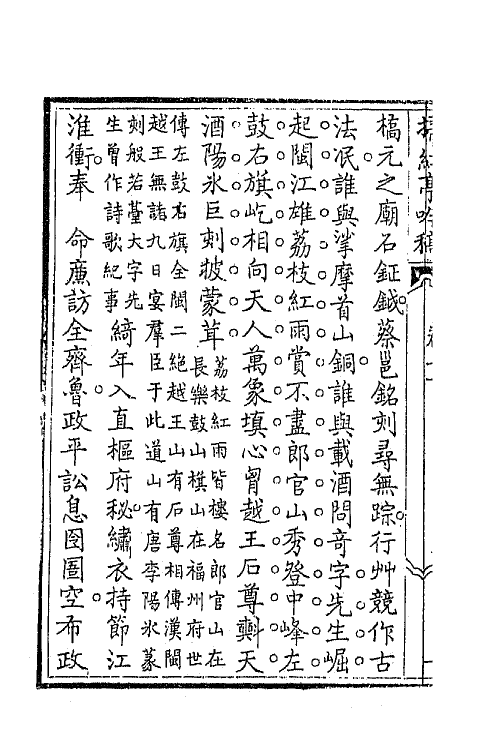 掃紅亭吟稿
橋元之廟石鉦鉞蔡邕銘刻尋無踪行艸競作古
法泯誰與挲摩首山銅誰與載酒問奇字先生崛
起閩江雄荔枝紅雨賞不盡郎官山秀登中峰左
鼓右旗屹相向天人萬象填心胷越王石尊㪺天
酒陽氷巨刺披蒙茸
荔枝紅雨皆樓名郎官山在
長樂鼓山旗山在福州府世
傳左鼓右旗全閩二絕越王山有石尊相傳漢閩
越王無諸九日宴羣臣于此道山有唐李陽氷篆
刻般若臺大字先
生曾作詩歌紀事
綺年入直樞府秘繡衣持節江
淮衝奉 命廉訪全齊魯政平訟息囹圄空布政